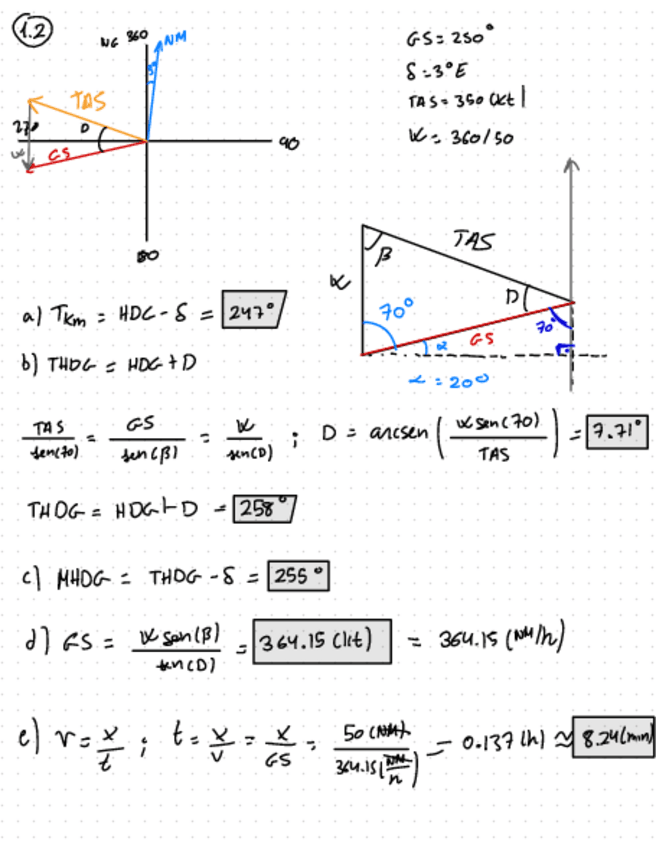 1.2
NG 360
NM
3°
TAS
270
D
W
GS
90
180
GS = 250°
δ = 3°E
TAS = 350 (kt)
W = 360/50
TAS
β
W
D
70°
GS
70°
α
α = 20°
a) Tkm = HDG - δ = 247°
b) THDG = HDG + D
TAS / sen(70) = GS / sen(β) = W / sen(D) ; D = arcsen ( W sen(70) / TAS ) = 7.71°
THDG = HDG + D = 258°
c) MHDG = THDG - δ = 255°
d) GS = W sen(β) / sen(D) = 364.15 (kt) = 364.15 (NM/h)
e) v = x / t ; t = x / v = x / GS = 50 (NM) / 364.15 (NM/h) = 0.137 (h) ≈ 8.24 (min)